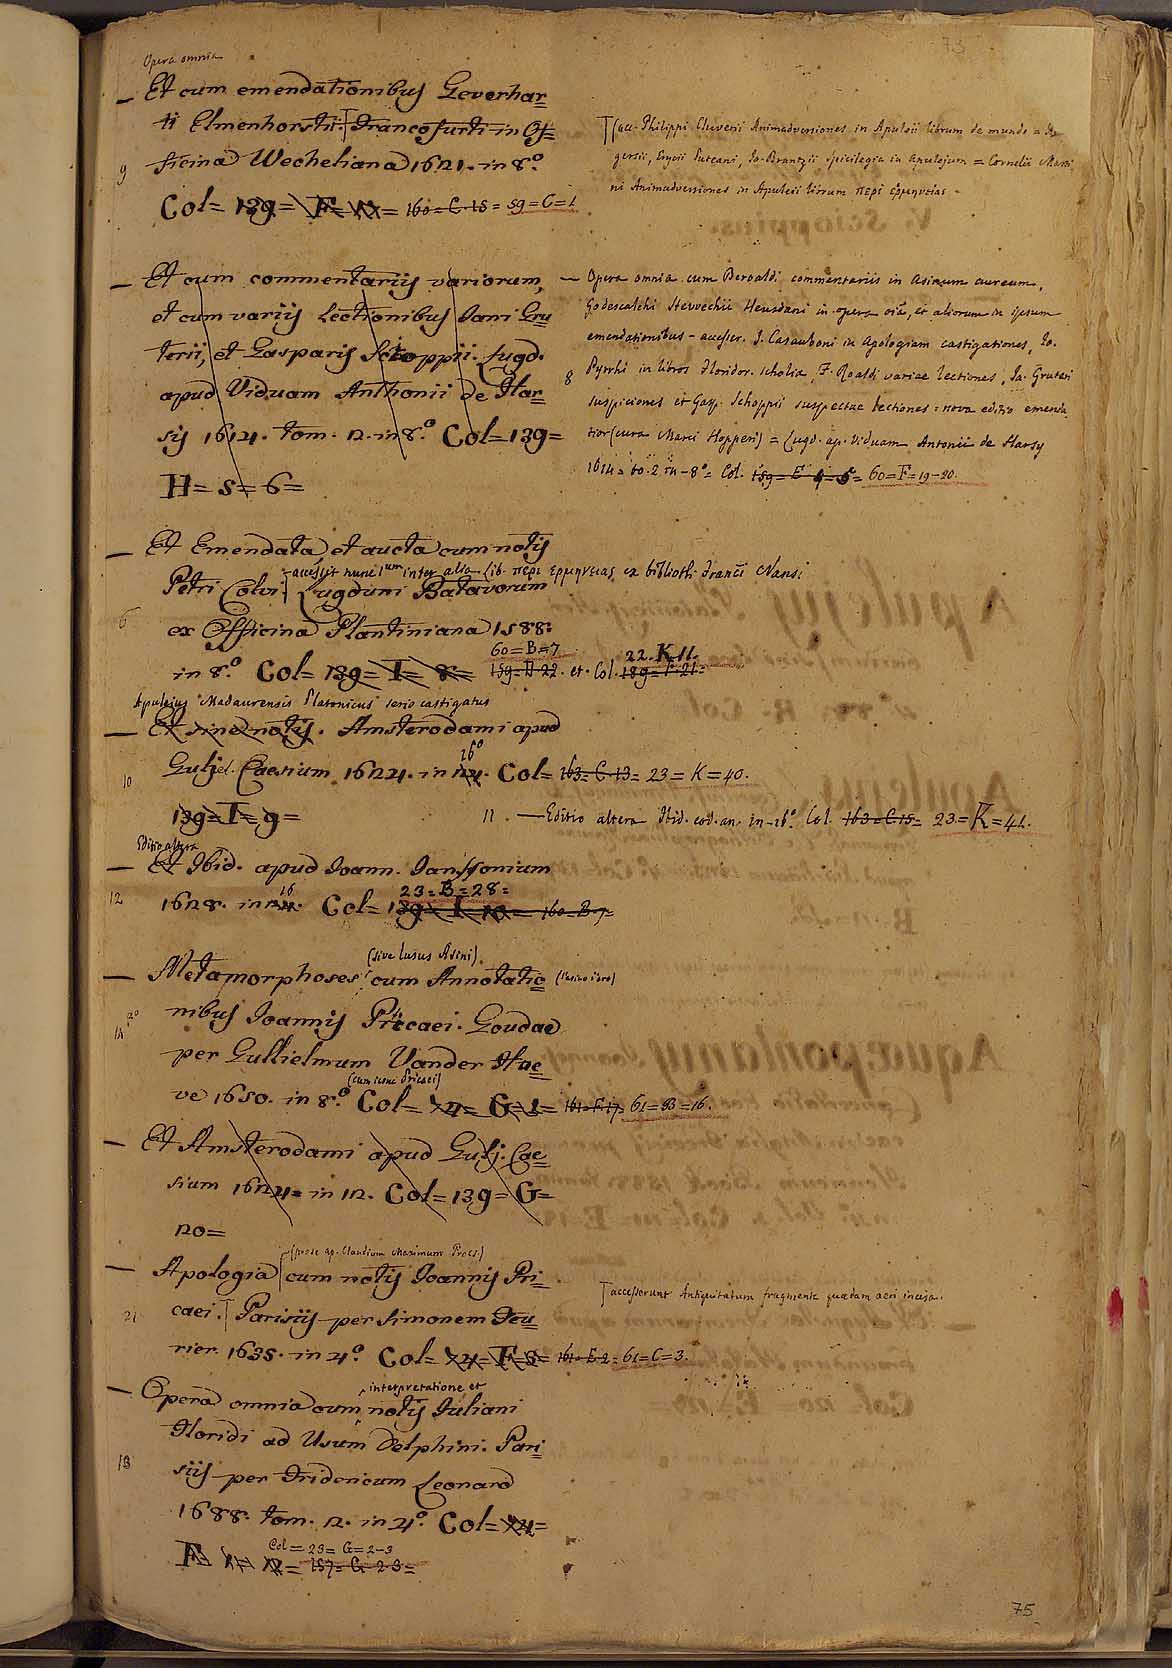 Opera omnia
— Et cum emendationibus Geverhar=
ti Elmenhorstii. Francofurti in Of=
9 ficina Wecheliana 1621. in 8.°
Col= 139= F= 12= 160= C. 18= 59= C= 1
acc. Philippi Cluverii Animadversiones in Apuleii librum de mundo =
gersii, Erycii Puteani, Jo. Brantzii spicilegia in Apulejum = Cornelii Marti
ni Animadversiones in Apuleii librum περὶ ἑρμηνείας -
— Et cum commentariis variorum,
et cum variis Lectionibus Jani Gru
terii, et Gasparis Scioppii. Lugd.
apud Viduam Anthonii de Har=
sy 1614. tom. 2. in 8.° Col= 139=
H= 5= 6=
— Opera omnia cum Beroaldi commentariis in Asinum aureum,
Godescalchi Stevvechii Heusdani in opera oĩa, et aliorum in ipsum
emendationibus - accesser. I. Casauboni in Apologiam castigationes, Io.
8 Pyrrhi in libros Floridor. scholia, F. Roaldi variae lectiones, Ja. Gruteri
suspiciones et Gasp. Schoppii suspectae lectiones: nova editio emenda
tior (cura Marci Hopperi) = Lugd. ap. Viduam Antonii de Harsy
1614= to. 2 in - 8°= Col. 159= E 4= 5= 60= F= 19-20.
— Et Emendata, et aucta cum notis
accessit nunc 1um inter alia Lib. περι ερμηνειας ex biblioth. Franci Nansi
Petri Colvi. Lugduni Batavorum
6 ex Officina Plantiniana 1588.
60= B= 7 22. K 11.
in 8.° Col= 139= I= 8= 159= D. 22. et Col. 189= F. 21=
Apuleius Madaurensis Platonicus serio castigatus
— Et sine notis. Amsterodami apud
16°
10 Guljel. Caesium 1624. in 24. Col= 163= C. 13= 23= K= 40.
139= I= 9=
11. — Editio altera Ibid. eod. an. in-16°. Col. 163= C 15= 23= K= 41.
Editio altera
— Et Ibid. apud Joann. Janssonium
16 23= B= 28=
12 1628. in 24. Col= 139= I= 10= 160= B. 7=
(sive lusus Asini)
— Metamorphoses cum Annotatio= (l'asino d'oro)
20
14 nibus Joannis Pricaei. Goudae
per Gullielmum Vander Hae=
(cum icone Pricaei)
ve 1650. in 8.° Col= 24= G= 1= 161= F. 17= 61= B= 16.
— Et Amsterodami apud Gulj. Cae=
sium 1624= in 12. Col= 139= G=
20=
(prose ap. Claudium Maximum Procs.)
— Apologia cum notis Joannis Pri=
21 caei. Parisiis per Simonem Feu=
rier 1635. in 4.° Col= 24= F= 3= 161= E. 2= 61= C= 3.
accesserunt Antiquitatum fragmenta quaedam aeri incisa.
interpretatione et
— Opera omnia cum notis Juliani
Floridi ad Usum Delphini. Pari=
13 siis per Fridericum Leonard
1688. tom. 2. in 4.° Col= 24=
Col= 23= G= 2-3
F= 157= G. 2. 3=
75